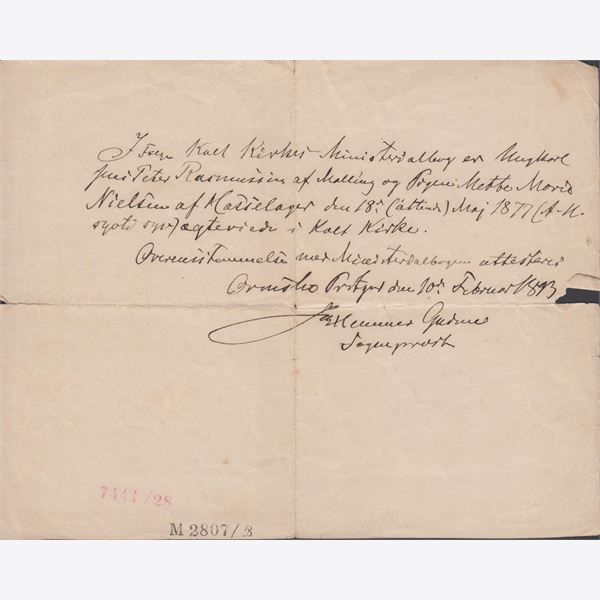 Ifølge Kolt Kirkes Ministerialbog er Ungkarl
Jens Peter Rasmussen af Malling og Pigen Mette Marie
Nielsen af Hasselager den 18de (attende) Maj 1877 (A-H.
syv) ægteviede i Kolt Kirke.
Overensstemmelsen med Ministerialbogen attesteres
Ormslev Præstgd den 10de Februar 1893
Hammer Gudme
Sognepræst
7441/28
M 2807/8